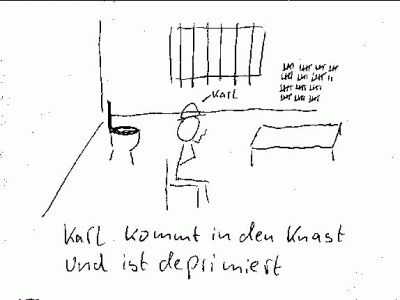 Karl
Karl kommt in den Knast
und ist deprimiert